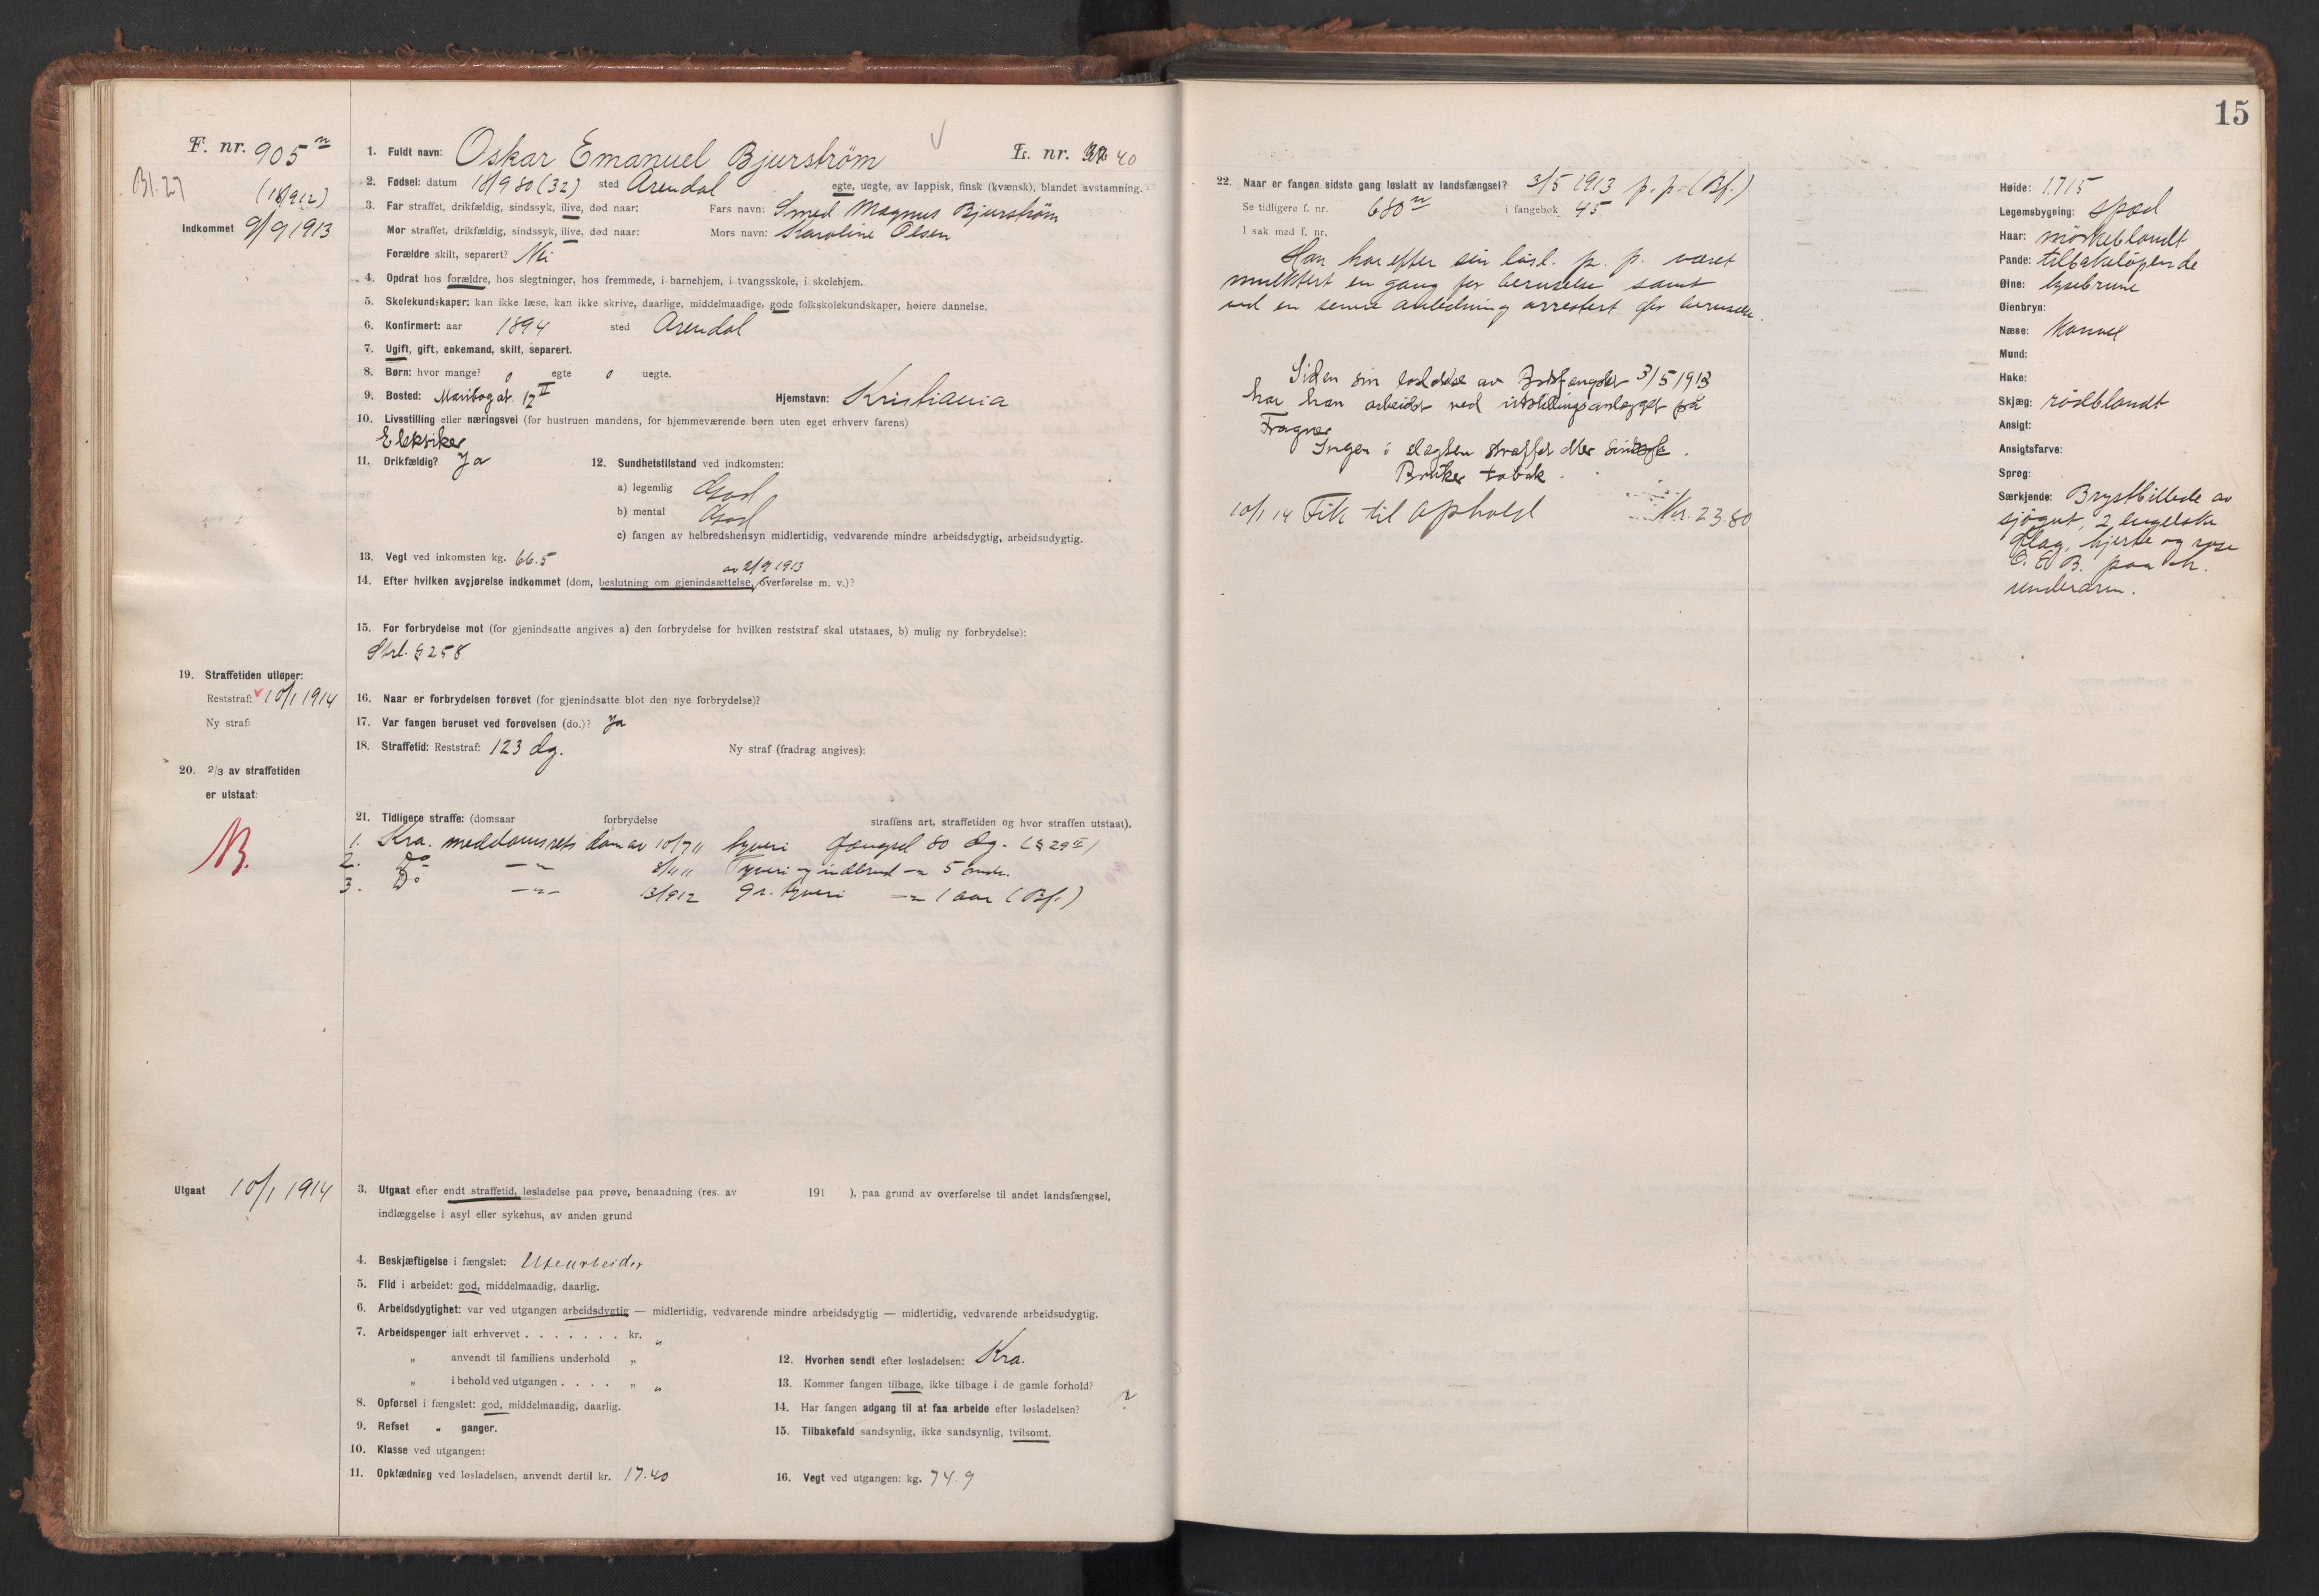 15
F. nr. 905
Bl. 27
(18/9 12)
Indkommet 9/9 1913
1. Fuldt navn: Oskar Emanuel Bjurström
L. nr. 40
2. Fødsel: datum 18/9 80 (32) sted Arendal egte, uegte, av lappisk, finsk (kvænsk), blandet avstamning.
3. Far straffet, drikfældig, sindssyk, ilive, død naar: Fars navn: Smed Magnus Bjurström
Mor straffet, drikfældig, sindssyk, ilive, død naar: Mors navn: Karoline Olsen
Forældre skilt, separert? Nei
4. Opdrat hos forældre, hos slegtninger, hos fremmede, i barnehjem, i tvangsskole, i skolehjem.
5. Skolekundskaper: kan ikke læse, kan ikke skrive, daarlige, middelmaadige, gode folkskolekundskaper, høiere dannelse.
6. Konfirmert: aar 1894 sted Arendal
7. Ugift, gift, enkemand, skilt, separert.
8. Børn: hvor mange? 0 egte 0 uegte.
9. Bosted: Maribogat. 12 II Hjemstavn: Kristiania
10. Livsstilling eller næringsvei (for hustruen mandens, for hjemmeværende børn uten eget erhverv farens)
Elektriker
11. Drikfældig? Ja
12. Sundhetstilstand ved indkomsten:
a) legemlig God
b) mental God
c) fangen av helbredshensyn midlertidig, vedvarende mindre arbeidsdygtig, arbeidsudygtig.
13. Vegt ved inkomsten kg. 66.5
av 2/9 1913
14. Efter hvilken avgjørelse indkommet (dom, beslutning om gjenindsættelse, overførelse m. v.)?
15. For forbrydelse mot (for gjenindsatte angives a) den forbrydelse for hvilken reststraf skal utstaaes, b) mulig ny forbrydelse):
Strl. § 258
19. Straffetiden utløper:
Reststraf: 10/1 1914
Ny straf:
16. Naar er forbrydelsen forøvet (for gjenindsatte blot den nye forbrydelse)?
17. Var fangen beruset ved forøvelsen (do.)? Ja
18. Straffetid: Reststraf: 123 dg. Ny straf (fradrag angives):
20. 2/3 av straffetiden
er utstaat:
21. Tidligere straffe: (domsaar forbrydelse straffens art, straffetiden og hvor straffen utstaat).
1. Kra. meddomsrets dom av 10/7 11 tyveri fængsel 80 dg. (§ 29 II)
2. Do —"— 8/11 11 Tyveri og indbrud —"— 5 mdr.
3. Do —"— 13/9 12 gr. tyveri —"— 1 aar (Bf.)
Utgaat 10/1 1914
3. Utgaat efter endt straffetid, løsladelse paa prøve, benaadning (res. av 191 ), paa grund av overførelse til andet landsfængsel,
indlæggelse i asyl eller sykehus, av anden grund
4. Beskjæftigelse i fængslet: Utearbeider
5. Flid i arbeidet: god, middelmaadig, daarlig.
6. Arbeidsdygtighet: var ved utgangen arbeidsdygtig — midlertidig, vedvarende mindre arbeidsdygtig — midlertidig, vedvarende arbeidsudygtig.
7. Arbeidspenger ialt erhvervet . . . . . . . kr. "
" anvendt til familiens underhold "
" i behold ved utgangen . . . . " "
8. Opførsel i fængslet: god, middelmaadig, daarlig.
9. Refset " ganger.
10. Klasse ved utgangen:
11. Opklædning ved løsladelsen, anvendt dertil kr. 17.40
12. Hvorhen sendt efter løsladelsen: Kra.
13. Kommer fangen tilbage, ikke tilbage i de gamle forhold?
14. Har fangen adgang til at faa arbeide efter løsladelsen? ?
15. Tilbakefald sandsynlig, ikke sandsynlig, tvilsomt.
16. Vegt ved utgangen: kg. 74.9
22. Naar er fangen sidste gang løslatt av landsfængsel? 3/5 1913 p. p. (Bf.)
Se tidligere f. nr. 680 i fangebok 45
I sak med f. nr.
Han har efter sin løsl. p. p. været
mulktert en gang for beruselse samt
ved en senere anledning arrestert for beruselse.
Siden sin løsladelse av 3/5 1913
har han arbeidet ved utstillingsanlægget på
Frogner
Ingen i slægten straffet eller sindssyk.
Bruker tobak.
10/1 14 Fik til ophold Kr. 23.80
Høide: 1.715
Legemsbygning: spæd
Haar: mørkeblondt
Pande: tilbakeløpende
Øine: lysebrune
Øienbryn:
Næse: Konvex
Mund:
Hake:
Skjæg: rödblondt
Ansigt:
Ansigtsfarve:
Sprog:
Særkjende: Brystbillede av
sjögut, 2 engelske
flag, hjerte og rose
O. E. B. paa h.
underarm.